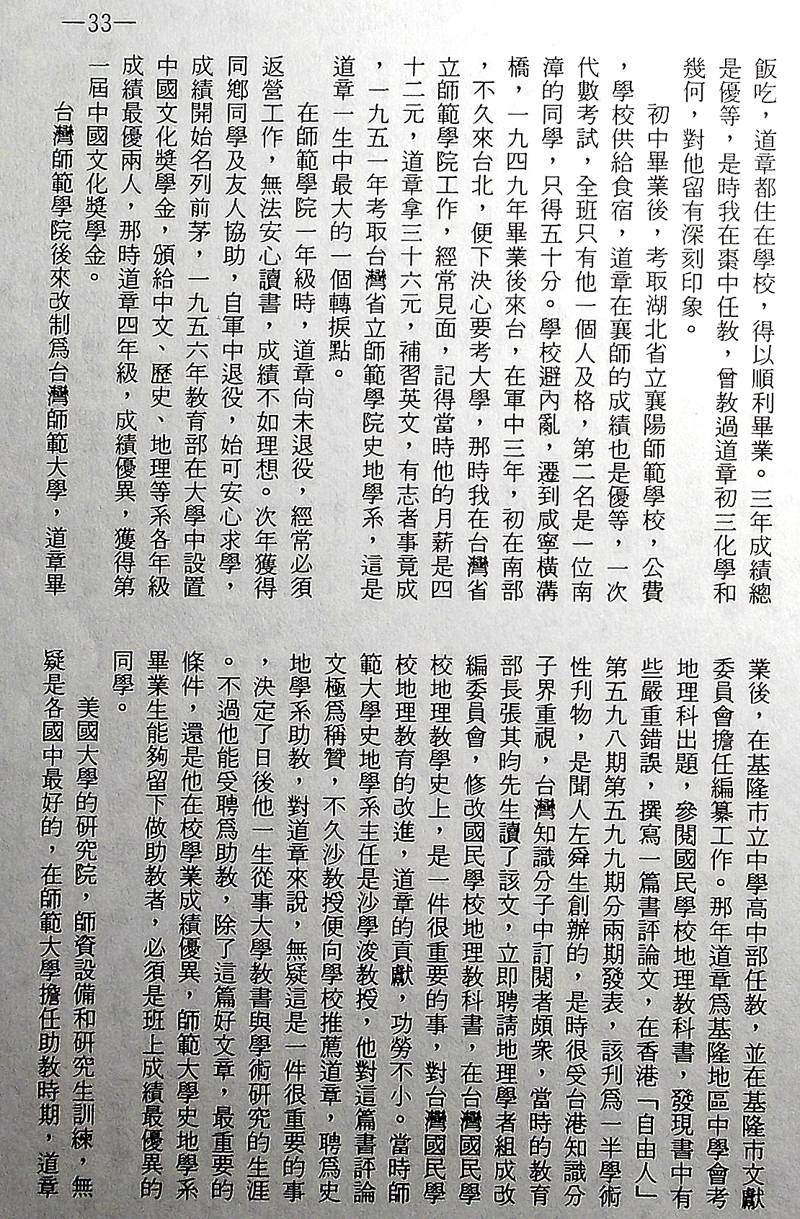 —33—
飯吃，道章都住在學校，得以順利畢業。三年成績總
是優等，是時我在棗中任教，曾教過道章初三化學和
幾何，對他留有深刻印象。
初中畢業後，考取湖北省立襄陽師範學校，公費
，學校供給食宿，道章在襄師的成績也是優等，一次
代數考試，全班只有他一個人及格，第二名是一位南
漳的同學，只得五十分。學校避內亂，遷到咸寧橫溝
橋，一九四九年畢業後來台，在軍中三年，初在南部
，不久來台北，便下決心要考大學，那時我在台灣省
立師範學院工作，經常見面，記得當時他的月薪是四
十二元，道章拿三十六元，補習英文，有志者事竟成
，一九五一年考取台灣省立師範學院史地學系，這是
道章一生中最大的一個轉捩點。
在師範學院一年級時，道章尚未退役，經常必須
返營工作，無法安心讀書，成績不如理想。次年獲得
同鄉同學及友人協助，自軍中退役，始可安心求學，
成績開始名列前茅，一九五六年教育部在大學中設置
中國文化獎學金，頒給中文、歷史、地理等系各年級
成績最優兩人，那時道章四年級，成績優異，獲得第
一屆中國文化獎學金。
台灣師範學院後來改制爲台灣師範大學，道章畢
業後，在基隆市立中學高中部任教，並在基隆市文獻
委員會擔任編纂工作。那年道章爲基隆地區中學會考
地理科出題，參閱國民學校地理教科書，發現書中有
些嚴重錯誤，撰寫一篇書評論文，在香港「自由人」
第五九八期第五九九期分兩期發表，該刊爲一半學術
性刋物，是聞人左舜生創辦的，是時很受台港知識分
子界重視，台灣知識分子中訂閱者頗衆，當時的教育
部長張其昀先生讀了該文，立即聘請地理學者組成改
編委員會，修改國民學校地理教科書，在台灣國民學
校地理教學史上，是一件很重要的事，對台灣國民學
校地理教育的改進，道章的貢獻，功勞不小。當時師
範大學史地學系主任是沙學浚教授，他對這篇書評論
文極爲稱讚，不久沙教授便向學校推薦道章，聘爲史
地學系助教，對道章來說，無疑這是一件很重要的事
，決定了日後他一生從事大學教書與學術研究的生涯
。不過他能受聘爲助教，除了這篇好文章，最重要的
條件，還是他在校學業成績優異，師範大學史地學系
畢業生能夠留下做助教者，必須是班上成績最優異的
同學。
美國大學的研究院，師資設備和研究生訓練，無
疑是各國中最好的，在師範大學擔任助教時期，道章